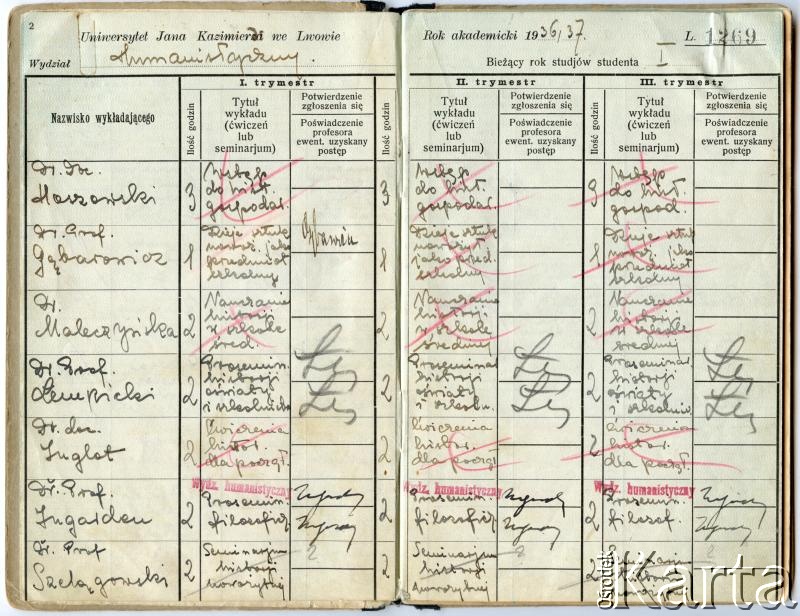 2
Uniwersytet Jana Kazimierza we Lwowie
Wydział Humanistyczny.
Rok akademicki 1936/37.
L. 1269
Bieżący rok studjów studenta I
Nazwisko wykładającego
I. trymestr
Ilość godzin
Tytuł wykładu (ćwiczeń lub seminarjum)
Potwierdzenie zgłoszenia się
Poświadczenie profesora ewent. uzyskany postęp
II. trymestr
Ilość godzin
Tytuł wykładu (ćwiczeń lub seminarjum)
Potwierdzenie zgłoszenia się
Poświadczenie profesora ewent. uzyskany postęp
III. trymestr
Ilość godzin
Tytuł wykładu (ćwiczeń lub seminarjum)
Potwierdzenie zgłoszenia się
Poświadczenie profesora ewent. uzyskany postęp
Dr. Doc.
3
Wstęp
do hist.
gospodar.
3
Wstęp
do hist.
gospodar.
3
Wstęp
do hist.
gospod.
Dr. Prof.
Gębarowicz
1
Dzieje sztuki
nowoż. jako
przedmiot
szkolny
1
Dzieje sztuki
nowożyt.
jako przed.
szkolny
1
Dzieje sztuki
nowoż. jako
przedmiot
szkolny
Dr.
Maleczyńska
2
Nauczanie
historji
w szkole
śred.
2
Nauczanie
historji
w szkole
średniej
2
Nauczanie
historji
w szkole
średniej
Dr. Prof.
Łempicki
2
Prosemin.
historji
oświaty
i szkolnictw.
2
Proseminar.
historji
oświaty
i szkoln.
2
Proseminar.
historji
oświaty
i szkolnic.
Dr. doc.
Inglot
2
Ćwiczenia
histor.
dla począt.
2
Ćwiczenia
histor.
dla począt.
2
Ćwiczenia
histor.
dla począt.
Wydz. humanistyczny
Wydz. humanistyczny
Wydz. humanistyczny
Dr. Prof.
Ingarden
2
Prosemin.
filozoficz.
2
Prosemin.
filozoficz.
2
Prosemin.
filozof.
Dr. Prof
Szelągowski
2
Seminarjum
historji
nowożytnej
2
Seminarjum
historji
nowożytnej
2
ośrodek
Karta